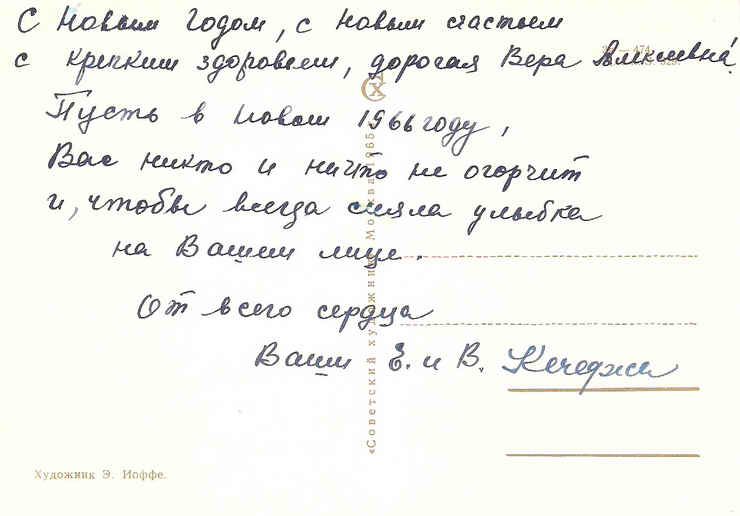 С Новым Годом, с новым счастьем
с крепким здоровьем, дорогая Вера
Пусть в Новом 1966 году,
Вас никто и ничто не огорчит
и, чтобы всегда сияла улыбка
на Вашем лице.
От всего сердца
Ваши Е. и В. Кечеджи
«Советский художник» Москва 1965
Художник Э. Иоффе.